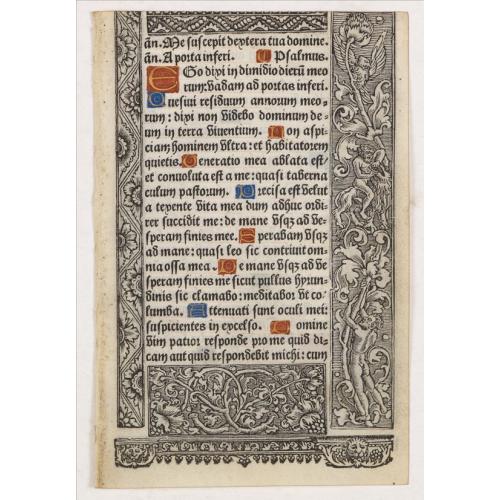 añ. Me suscepit dextera tua domine.
añ. A porta inferi. Psalmus.
EGo dixi in dimidio dierū meo
rum: vadam ad portas inferi.
Quesiui residuum annorum meo-
rum: dixi non videbo dominum de-
um in terra viuentium. Non aspi
ciam hominem vltra: et habitatorem
quietis. Generatio mea ablata est/
et conuoluta est a me: quasi taberna
culum pastorum. Precisa est velut
a texente vita mea dum adhuc ordi-
rer succidit me: de mane vsqz ad ve-
speram finies me. Sperabam vsqz
ad mane: quasi leo sic contriuit om-
nia ossa mea. De mane vsqz ad ve
speram finies me sicut pullus hyrun-
dinis sic clamabo: meditabor vt co-
lumba. Attenuati sunt oculi mei:
suspicientes in excelso. Domine
vim patior responde pro me quid di-
cam aut quid respondebit michi: cum